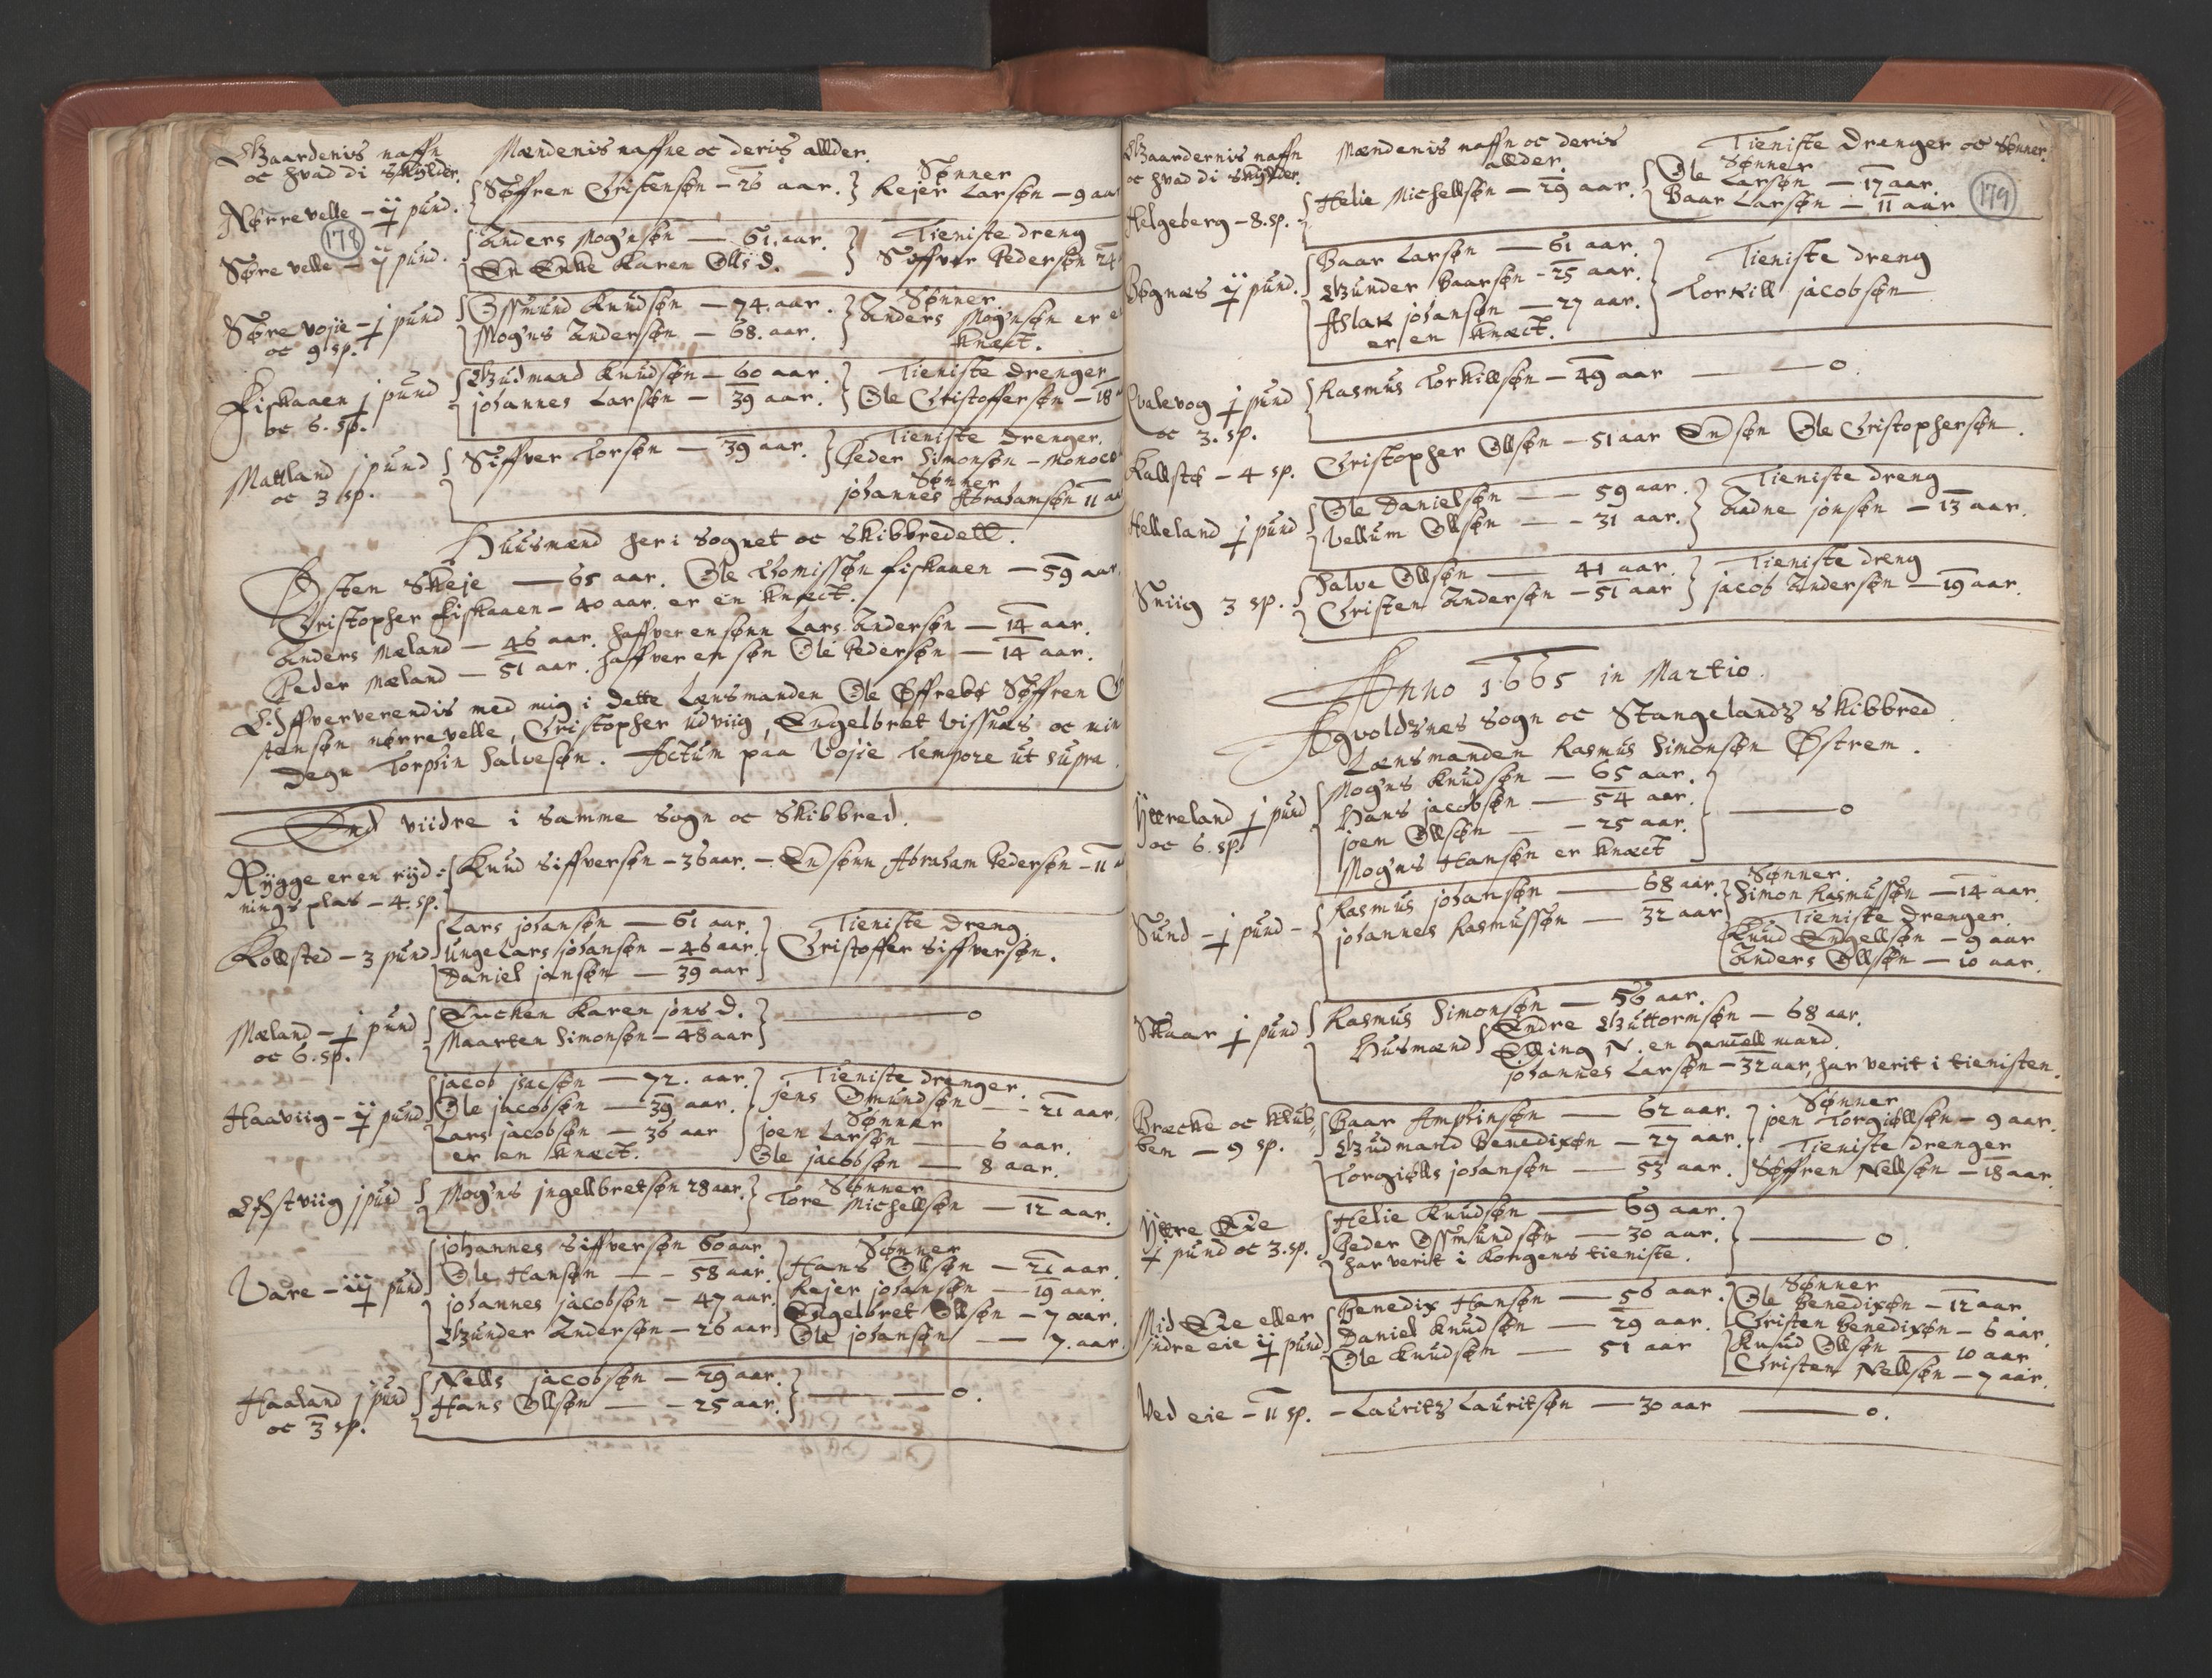 Gaardenis naffn
oc hvad di skylder.
Mændenis naffne oc deris allder.
Nørre velle - ij pund.
Søffren Christensøn - 26 aar.
Sønner
Rejer Larsøn - 9 aar
178
Søre velle - ij pund.
Anders Mognsøn - 61. aar.
En Enke Karen Olls d.
Tieniste dreng
Siffver Pedersøn 24
Søre vojie - j pund
oc 9 sp.
Ossmund Knudsøn - 74. aar.
Mogns Andersøn - 68. aar.
Sønner.
Anders Mognsøn er e
knæct.
Fiskaaen j pund
oc 6. sp.
Gudmand Knudsøn - 60 aar.
johannes Larsøn - 39 aar.
Tieniste drenger
Ole Christoffersøn - 18
Mattland j pund
oc 3 sp.
Siffver Torsøn - 39 aar.
Tieniste drenger.
Peder Simonsøn - Monoc
Sønner
johannes Abrahamsøn 11 aa
Huusmænd her i Sognet oc Skibbredett.
Østen Skeje - 65 aar. Ole Thomissøn fiskaaen - 59 aar.
Christopher fiskaaen - 40 aar. er en knæct.
Anders Mæland - 46 aar. haffver en sønn Lars Andersøn - 14 aar.
Peder Mæland - 51 aar. haffver en søn Ole Pedersøn - 14 aar.
Offververendis med mig i dette Lensmanden Ole Øffrebø Søffren C
stensøn nørre velle, Christopher Udviig, Engelbret Vissnæs oc min
Degn Torphin Salvesøn. Actum paa Vojie Tempore ut supra.
End viidre i samme Sogn oc Skibbred.
Rygge er en ryd-
nings plas - 4. sp.
Knud Siffversøn - 36 aar. - En sønn Abraham Pedersøn - 11 a
Kollsted - 3 pund
Lars johansøn - 61 aar.
Unge Lars johansøn - 46 aar.
Daniel jonsøn - 39 aar
Tieniste Dreng.
Christoffer Siffversøn.
Mæland - j pund
oc 6. sp.
Encken Karen jons d.
Maarten Simonsøn - 48 aar
- 0
Haaviig - ij pund
jacob jsacsøn - 72. aar.
Ole jacobsøn - 39 aar.
Lars jacobsøn - 36 aar
er en knæct.
Tieniste drenger.
jens Omundsøn - 21 aar.
Sønner
joen Larsøn - 6 aar.
Ole jacobsøn - 8 aar.
Østviig j pund
Mogns jngellbretsøn 28 aar.
Sønner
Tore Michellsøn - 12 aar.
Vare - iij pund
johannes Siffversøn 60 aar.
Ole Hansøn - 58 aar.
johannes jacobsøn - 47 aar.
Gunder Andersøn - 26 aar
Sønner
Hans Ollsøn - 21 aar.
Rejer johansøn - 19 aar.
Engelbret Ollsøn - 7 aar.
Ole johansøn - 7. aar.
Haaland j pund
oc 3 sp.
Nells jacobsøn - 29 aar.
Hans Ollsøn - 25 aar.
- 0.
Gaardernis naffn
oc hvad di skylder.
Mændenis naffn oc deris
allder.
Tieniste Drenger oc Sønner.
Helgeberg - 8. sp.
Helie Michellsøn - 29 aar.
Sønner
Ole Larsøn - 17 aar.
Baar Larsøn - 11 aar
179
Bognæs ij pund.
Baar Larsøn - 61 aar.
Gunder Baarsøn - 25 aar.
Aslak johansøn - 27 aar.
er en knæct.
Tieniste dreng
Torkill jacobsøn
Qvalevog j pund
oc 3. sp.
Rasmus Torkillsøn - 49 aar - 0.
Kallstø - 4 sp. Christopher Ollsøn - 51 aar En søn Ole Christophersøn.
Helleland j pund
Ole Danielsøn - 59 aar.
Vellum Ollsøn - 31 aar.
Tieniste dreng
Aadne jonsøn - 13 aar.
Sniig 3 sp.
Salve Ollsøn - 41 aar.
Christen Andersøn - 51 aar
Tieniste dreng
jacob Andersøn - 19 aar.
Anno 1665 in Martio.
Agvoldznæs Sogn oc Stangelandz Skibbred.
Lensmanden Rasmus Simonsøn Østrem.
Yttreland j pund
oc 6. sp.
Mogns Knudsøn - 65 aar.
Hans jacobsøn - 54 aar.
joen Ollsøn - 25 aar.
Mogns Hansøn er knæct
- 0
Sund - j pund -
Rasmus johansøn - 68 aar.
johannes Rasmussøn - 32 aar
Sønner.
Simon Rasmussøn - 14 aar.
Tieniste drenger.
Knud Engellsøn - 9 aar
Anders Ollsøn - 10 aar.
Skaar j pund
Rasmus Simonsøn - 56 aar.
Husmænd
Endre Guttormsøn - 68 aar.
Elling N. en gamell mand.
johannes Larsøn - 32 aar, har verit i tienisten.
Bræcke oc Klub-
ben - 9 sp.
Baar Amphinsøn - 62 aar.
Gudmand Benedixøn - 27 aar.
Torgiølls johansøn - 53 aar.
Sønner
jen Torgiøllsøn - 9 aar.
Tieniste drenger
Søffren Nellsøn - 18 aar.
Yttre Eie
j pund oc 3. sp.
Helie Knudsøn - 69 aar.
Peder Ossmundsøn - 30 aar.
har verit i Kongens tieniste.
- 0.
Mid Eie eller
indre eie ij pund
Benedix Hansøn - 56 aar.
Daniel Knudsøn - 29 aar.
Ole Knudsøn - 51 aar
Sønner
Ole Benedixøn - 12 aar
Christen Benedixøn - 6 aar.
Knud Ollsøn - 10 aar
Christen Nellsøn - 7 aar.
Ved eie - 11 sp. - Lauritz Lauritsøn - 30 aar - 0.